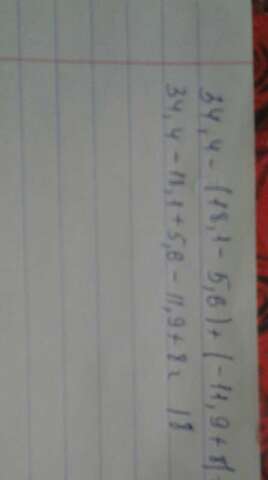 34,4-(18,1-5,6)+(-11,9+8)
34,4-18,1+5,6-11,9+8= 18